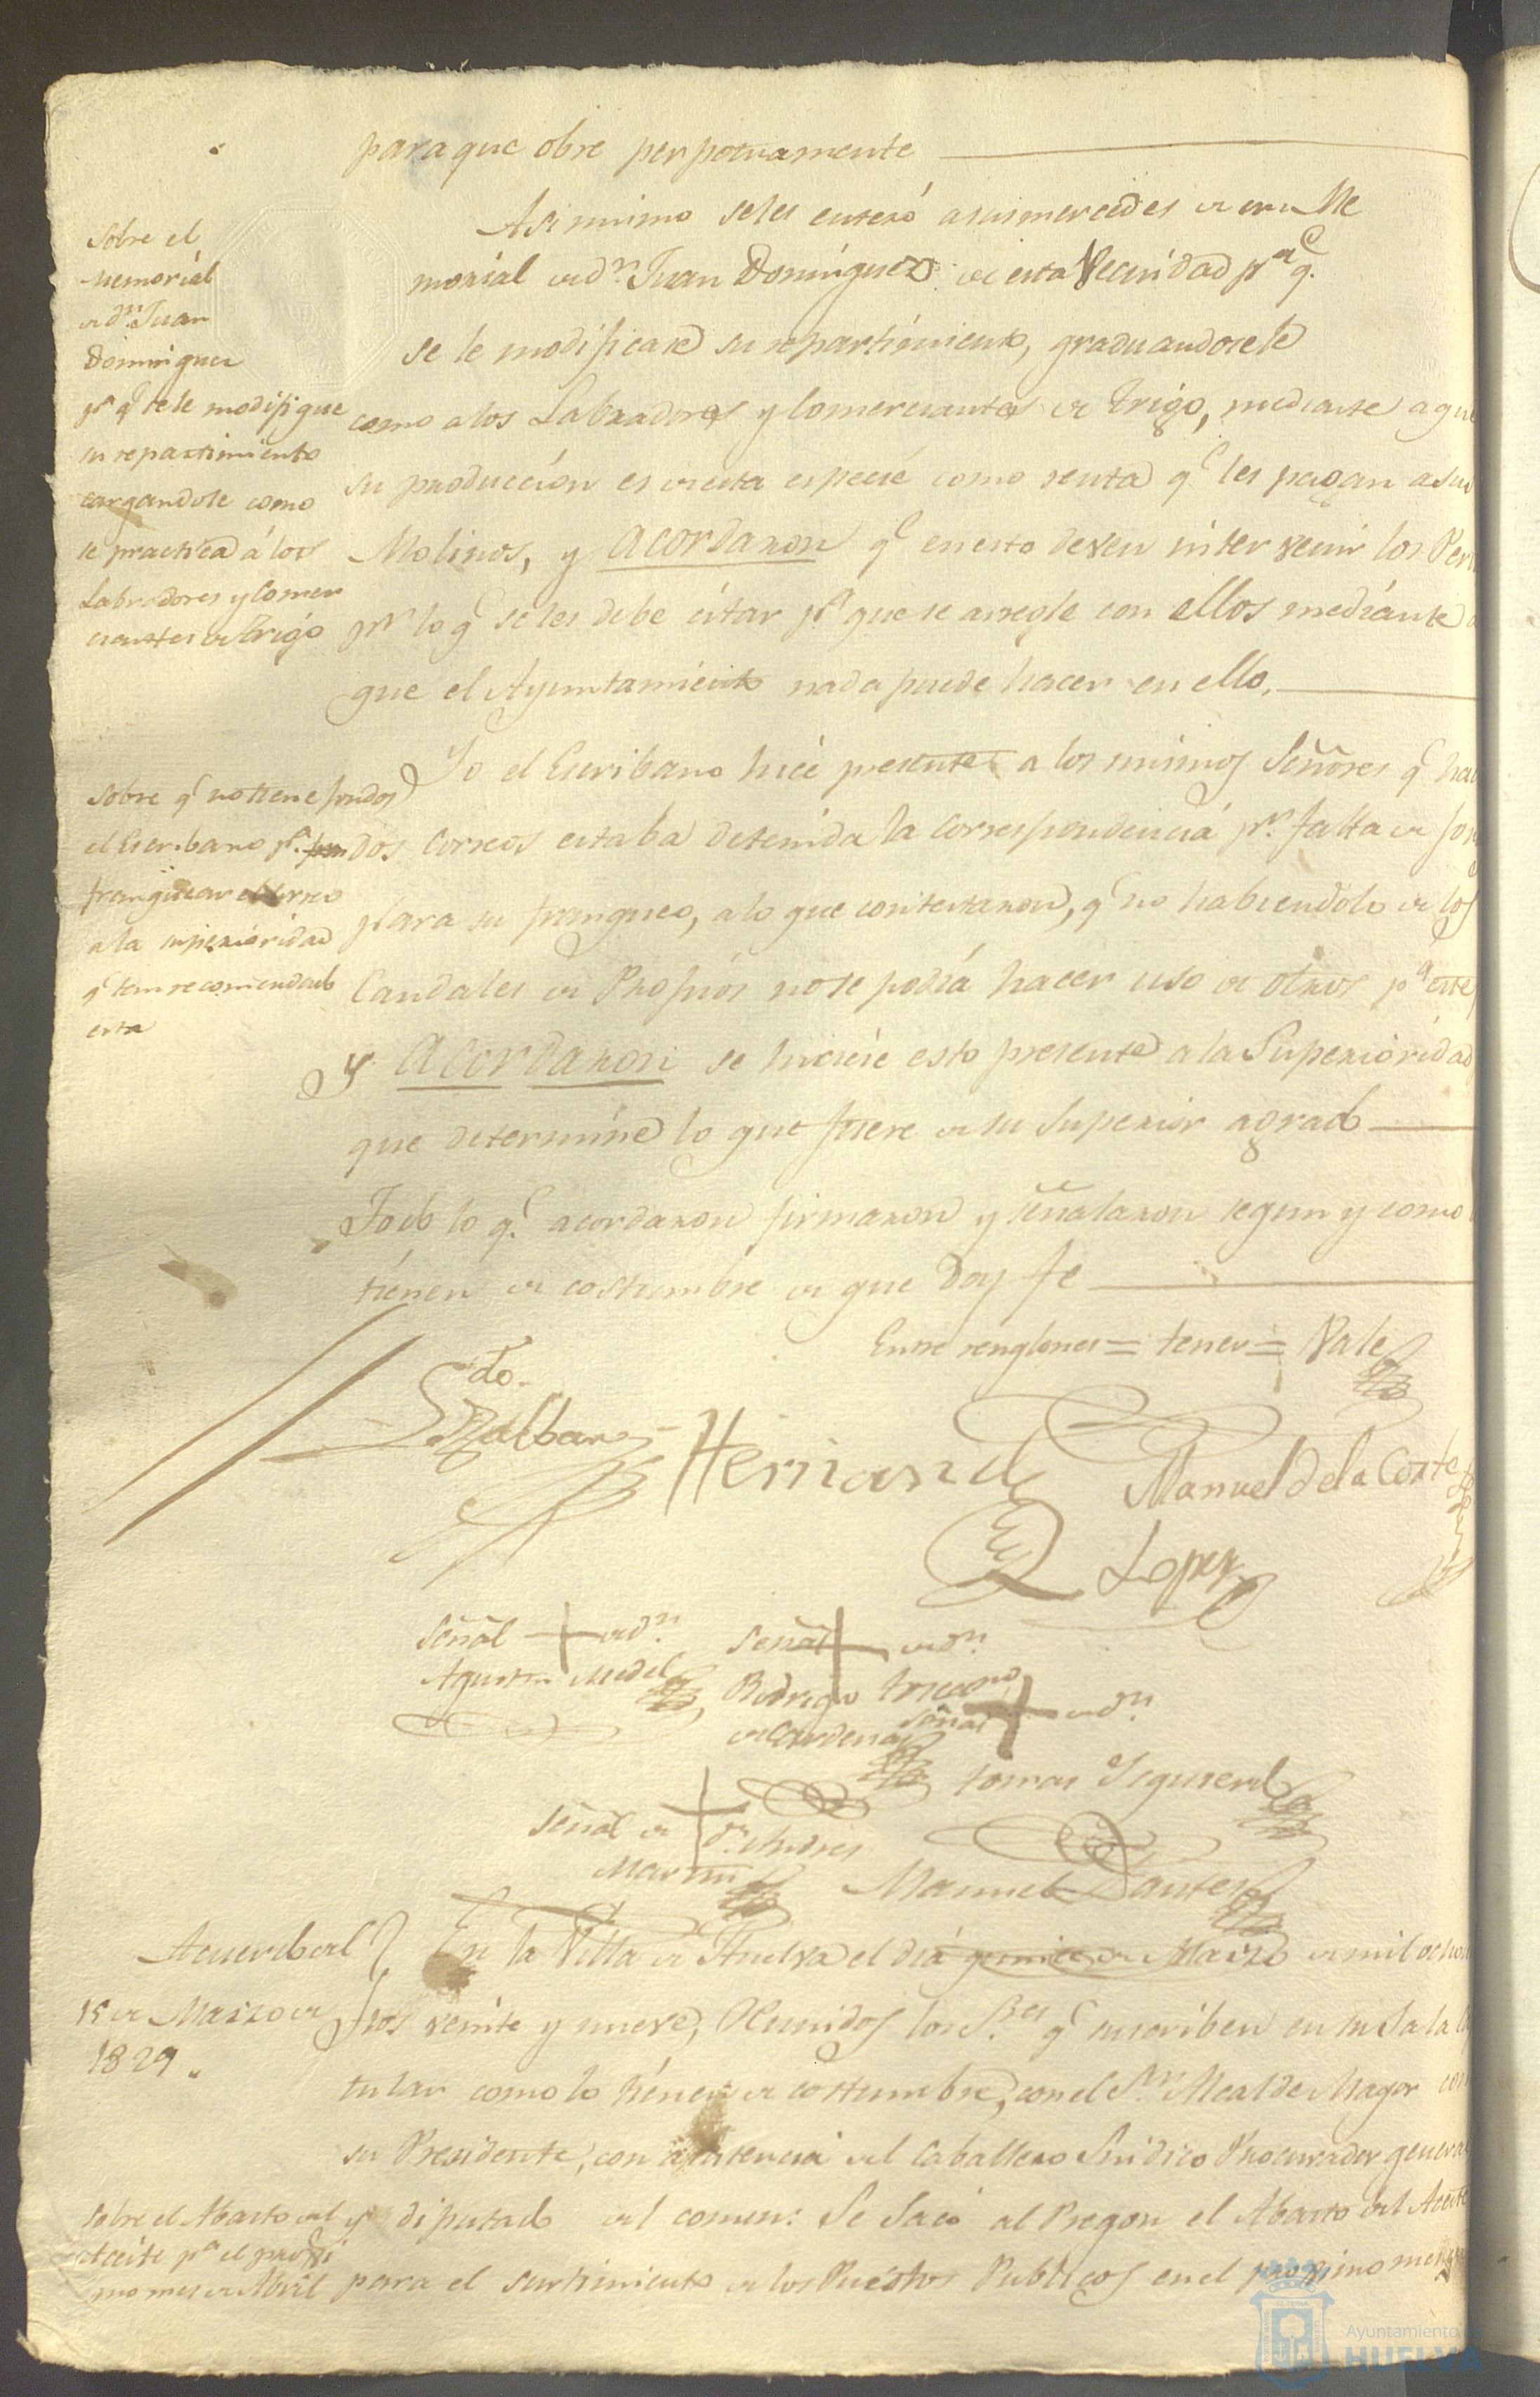 para que obre perpetuamente
Sobre el
Memorial
de dn. Juan
Dominguez
pa. q.e se le modifique
su repartimiento
cargandole como
se practica á los
Labradores y Comer
ciantes de Trigo
Asi mismo se les enteró a sus mercedes de un Me
morial de dn. Juan Dominguez de esta Vecindad pa. q.e
se le modificase su repartimiento, graduandosele
como a los Labradores y Comerciantes de Trigo, mediante a que
su producción es de esta especie como renta q.e les pagan a sus
Molinos, y Acordaron q.e en esto deven intervenir los
pr. lo q.e se les debe citar pa. que se arregle con ellos mediante a
que el Ayuntamiento nada puede hacer en ello.
Sobre q.e no tiene fondos
el Escribano pa.
franquear el correo
a la superioridad
q.e tiene recomendado
esta
Yo el Escribano hice presente a los mismos Señores q.e hac
dos Correos estaba detenida la correspondencia pr. falta de fon
para su franqueo, a lo que contestaron, q.e no habiendolo de los
Caudales de Propios no se podia hacer uso de otros pa. este
y Acordaron se hiciese esto presente a la Superioridad
que determine lo que fuere de su Superior agrado
Todo lo q.e acordaron firmaron y señalaron segun y como
tienen de costumbre de que Doy fe
Entre renglones = tener = Vale
Ldo.
Hernand
Manuel de la Corte
Lopez
Señal + de dn.
Agustin Medel
Señal + de dn.
Rodrigo
de Cardenas
Señal + de dn.
tomas
Señal de + dn. Andres
Martin
Manuel
Acuerdo del
15 de Marzo de
1829.
En la Villa de Huelva el dia quince de Marzo de mil ocho
tos veinte y nueve, Reunidos los S.res q.e suscriben en su Sala Ca
tular como lo tienen de costumbre, con el S.or Alcalde Mayor com
su Presidente, con asistencia del Caballero Sindico Procurador general
Sobre el Abasto del
Aceite pa. el proxi
mo mes de Abril
y diputado del comun: Se Sacó al Pregon el Abasto del Aceite
para el surtimiento de los Puestos Publicos en el proximo mes
Ayuntamiento de
HUELVA